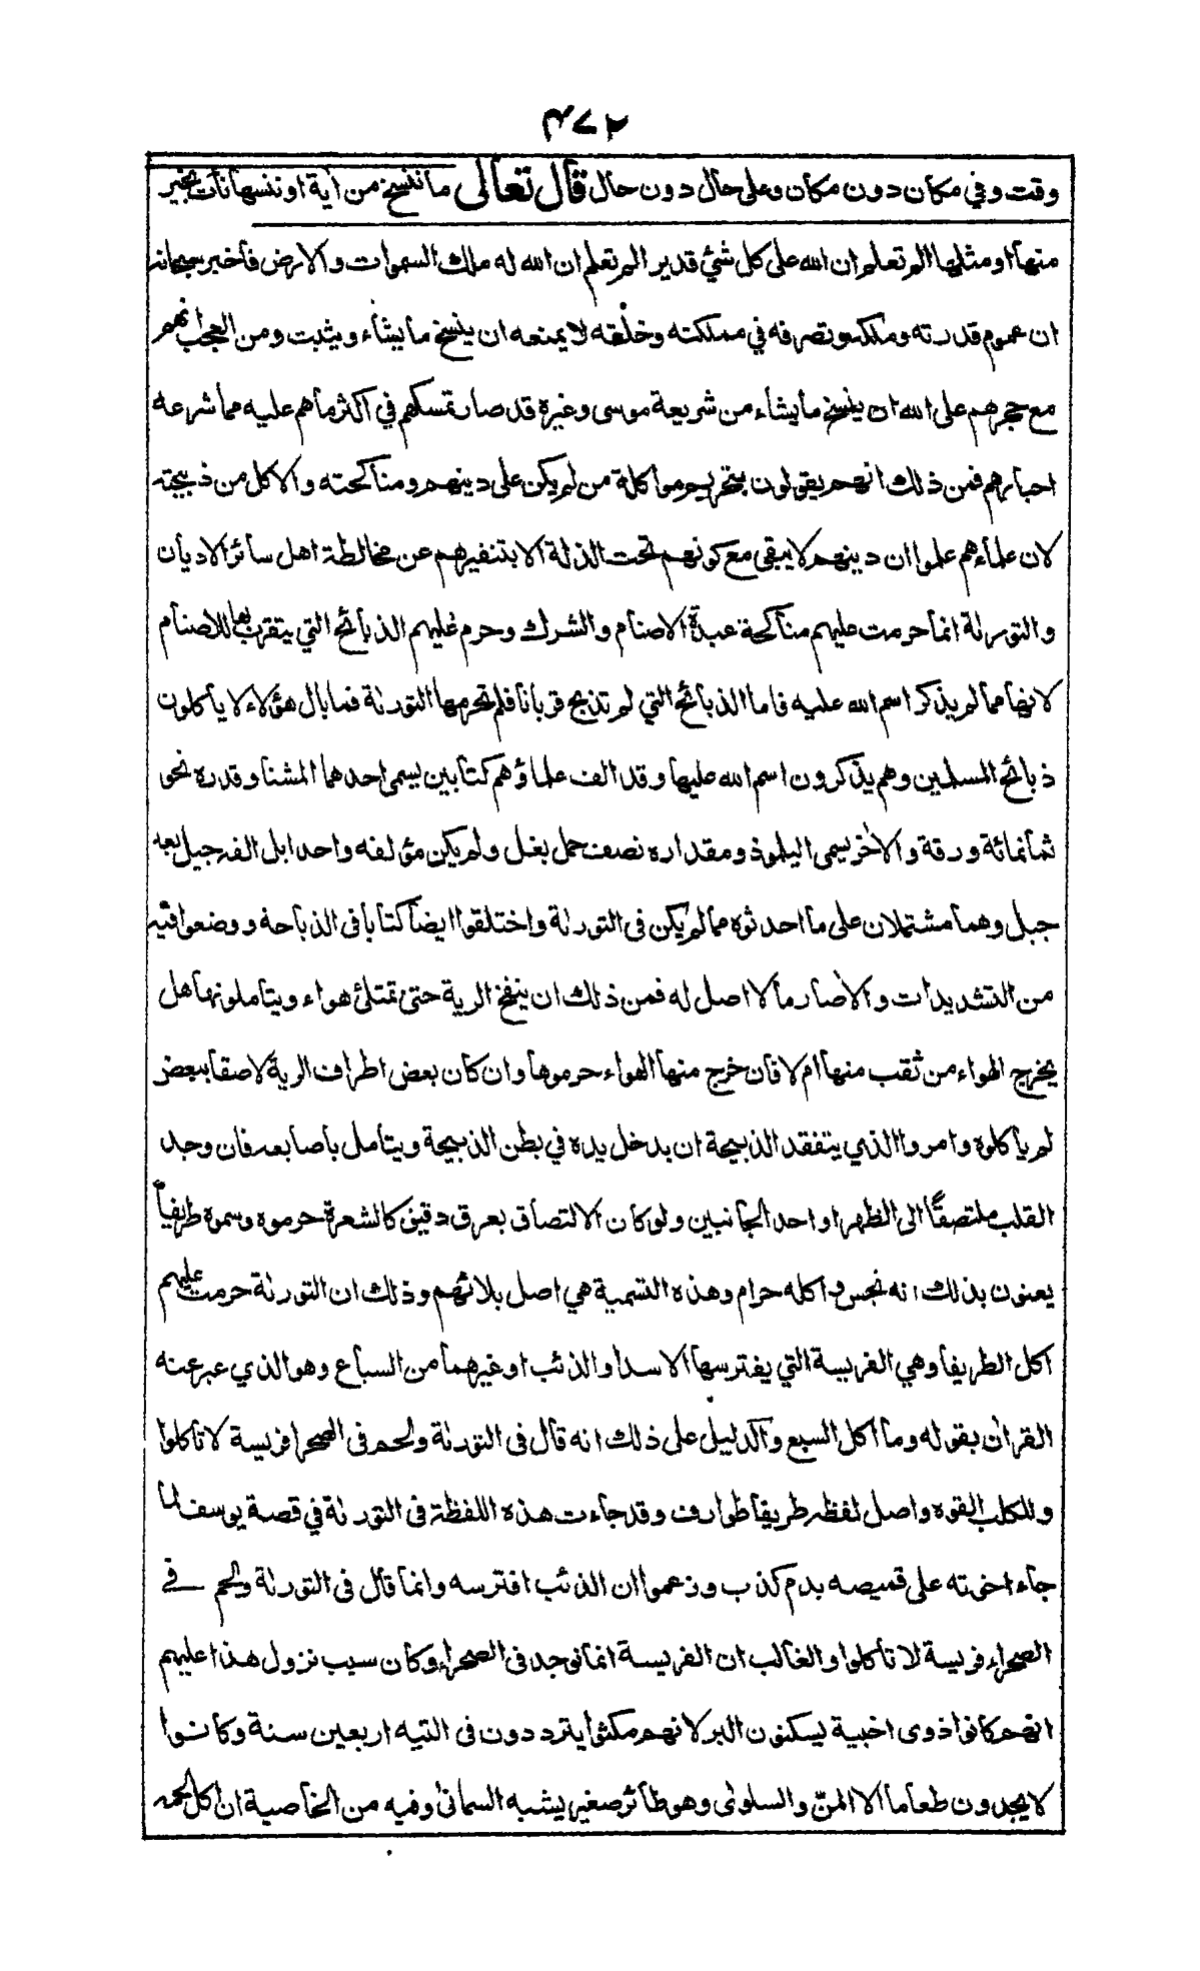 ۴۷۲
وقت وفي مكان دون مكان وعلى حال دون حال قال تعالى ما ننسخ من اية او ننسها نأت بخير
منها او مثلها الم تعلم ان الله على كل شئ قدير الم تعلم ان الله له ملك السموات والارض فاخبر سبحانه
ان عموم قدرته وملكه وتصرفه في مملكته وخلقه لا يمنعه ان ينسخ ما يشاء ويثبت ومن العجب انهم
مع حجرهم على الله ان ينسخ ما يشاء من شريعة موسى وغيره قد صار تمسكهم في اكثر ما هم عليه مما شرعه
احبارهم فمن ذلك انهم يقولون بتحريم مواكلة من لم يكن على دينهم ومناكحته والاكل من ذبيحته
لان علماءهم علموا ان دينهم لا يبقى مع كونهم تحت الذلة الا بتنفيرهم عن مخالطة اهل سائر الاديان
والتورىة انما حرمت عليهم مناكحة عبدة الاصنام والشرك وحرم عليهم الذبائح التي يتقرب بها للاصنام
لانها مما لم يذكر اسم الله عليه فاما الذبائح التي لم تذبح قربانا فلم تحرمها التورىة فما بال هؤلاء لا ياكلون
ذبائح المسلمين وهم يذكرون اسم الله عليها وقد الف علماؤهم كتابين يسمى احدهما المشنا وقدره نحو
ثمانمائة ورقة والاخر يسمى اليلموذ ومقداره نصف حمل بغل ولم يكن مؤلفه واحدا بل الفه جيل بعد
جبل وهما مشتملان على ما احدثوه مما لم يكن فى التورىة واختلقوا ايضا كتابا فى الذباحة ووضعوا فيه
من التشديدات والاصار ما لا اصل له فمن ذلك ان ينفخ الرية حتى تمتلئ هواء ويتاملونها هل
يخرج الهواء من ثقب منها ام لا فان خرج منها الهواء حرموها وان كان بعض اطراف الرية لاصقا ببعض
لم ياكلوه وامروا الذي يتفقد الذبيحة ان يدخل يده في بطن الذبيحة ويتامل باصابعه فان وجد
القلب ملتصقا الى الظهر او احد الجانبين ولو كان الالتصاق بعرق دقيق كالشعرة حرموه وسموه طريفا
يعنون بذلك انه نجس واكله حرام وهذه التسمية هي اصل بلائهم وذلك ان التورىة حرمت عليهم
اكل الطريفا وهي الفريسة التي يفترسها الاسد او الذئب او غيرهما من السباع وهو الذي عبر عنه
القران بقوله وما اكل السبع والدليل على ذلك انه قال فى التورىة ولحم فى الصحرا فريسة لا تاكلوا
وللكلب القوه واصل لفظه طريفا طوارف وقد جاءت هذه اللفظة فى التورىة في قصة يوسف لما
جاء اخوته على قميصه بدم كذب وزعموا ان الذئب افترسه وانما قال فى التورىة ولحم في
الصحراء فريسة لا تاكلوا والغالب ان الفريسة انما توجد فى الصحراء وكان سبب نزول هذا عليهم
انهم كانوا ذوى اخبية يسكنون البر لانهم مكثوا يترددون فى التيه اربعين سنة وكانوا
لا يجدون طعاما الا المنّ والسلوى وهو طائر صغير يشبه السمانى وفيه من الخاصية ان اكل لحمه